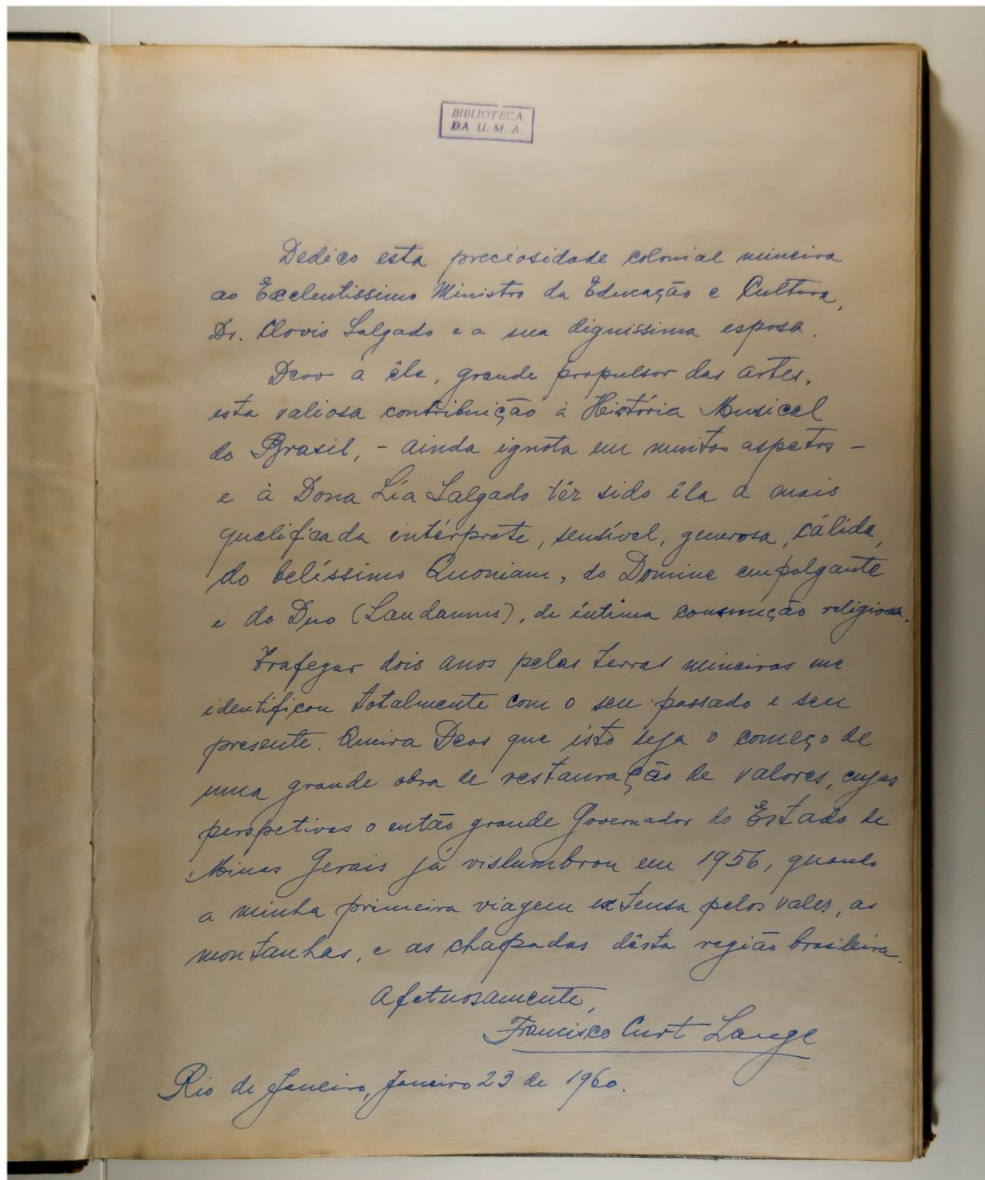 BIBLIOTECA
DA U. M. A.
Dedico esta preciosidade colonial mineira
ao Excelentissimo Ministro da Educação e Cultura,
Dr. Clovis Salgado e a sua dignissima esposa.
Devo a êle, grande propulsor das artes,
esta valiosa contribuição à História Musical
do Brasil, - ainda ignota em muitos aspetos -
e à Dona Lia Salgado têr sido éla a mais
qualificada intérprete, sensível, generosa, cálida,
do belíssimo Quoniam, do Domine empolgante
e do Duo (Laudamus), de íntima comunicação religiosa.
Trafegar dois anos pelas terras mineiras me
identificou totalmente com o seu passado e seu
presente. Queira Deos que isto seja o começo de
uma grande obra de restauração de valores, cujas
perspetivas o então grande Governador do Estado de
Minas Gerais já vislumbrou em 1956, quando
a minha primeira viagem extensa pelos vales, as
montanhas, e as chapadas désta região brasileira.
Afetuosamente,
Francisco Curt Lange
Rio de Janeiro, Janeiro 23 de 1960.